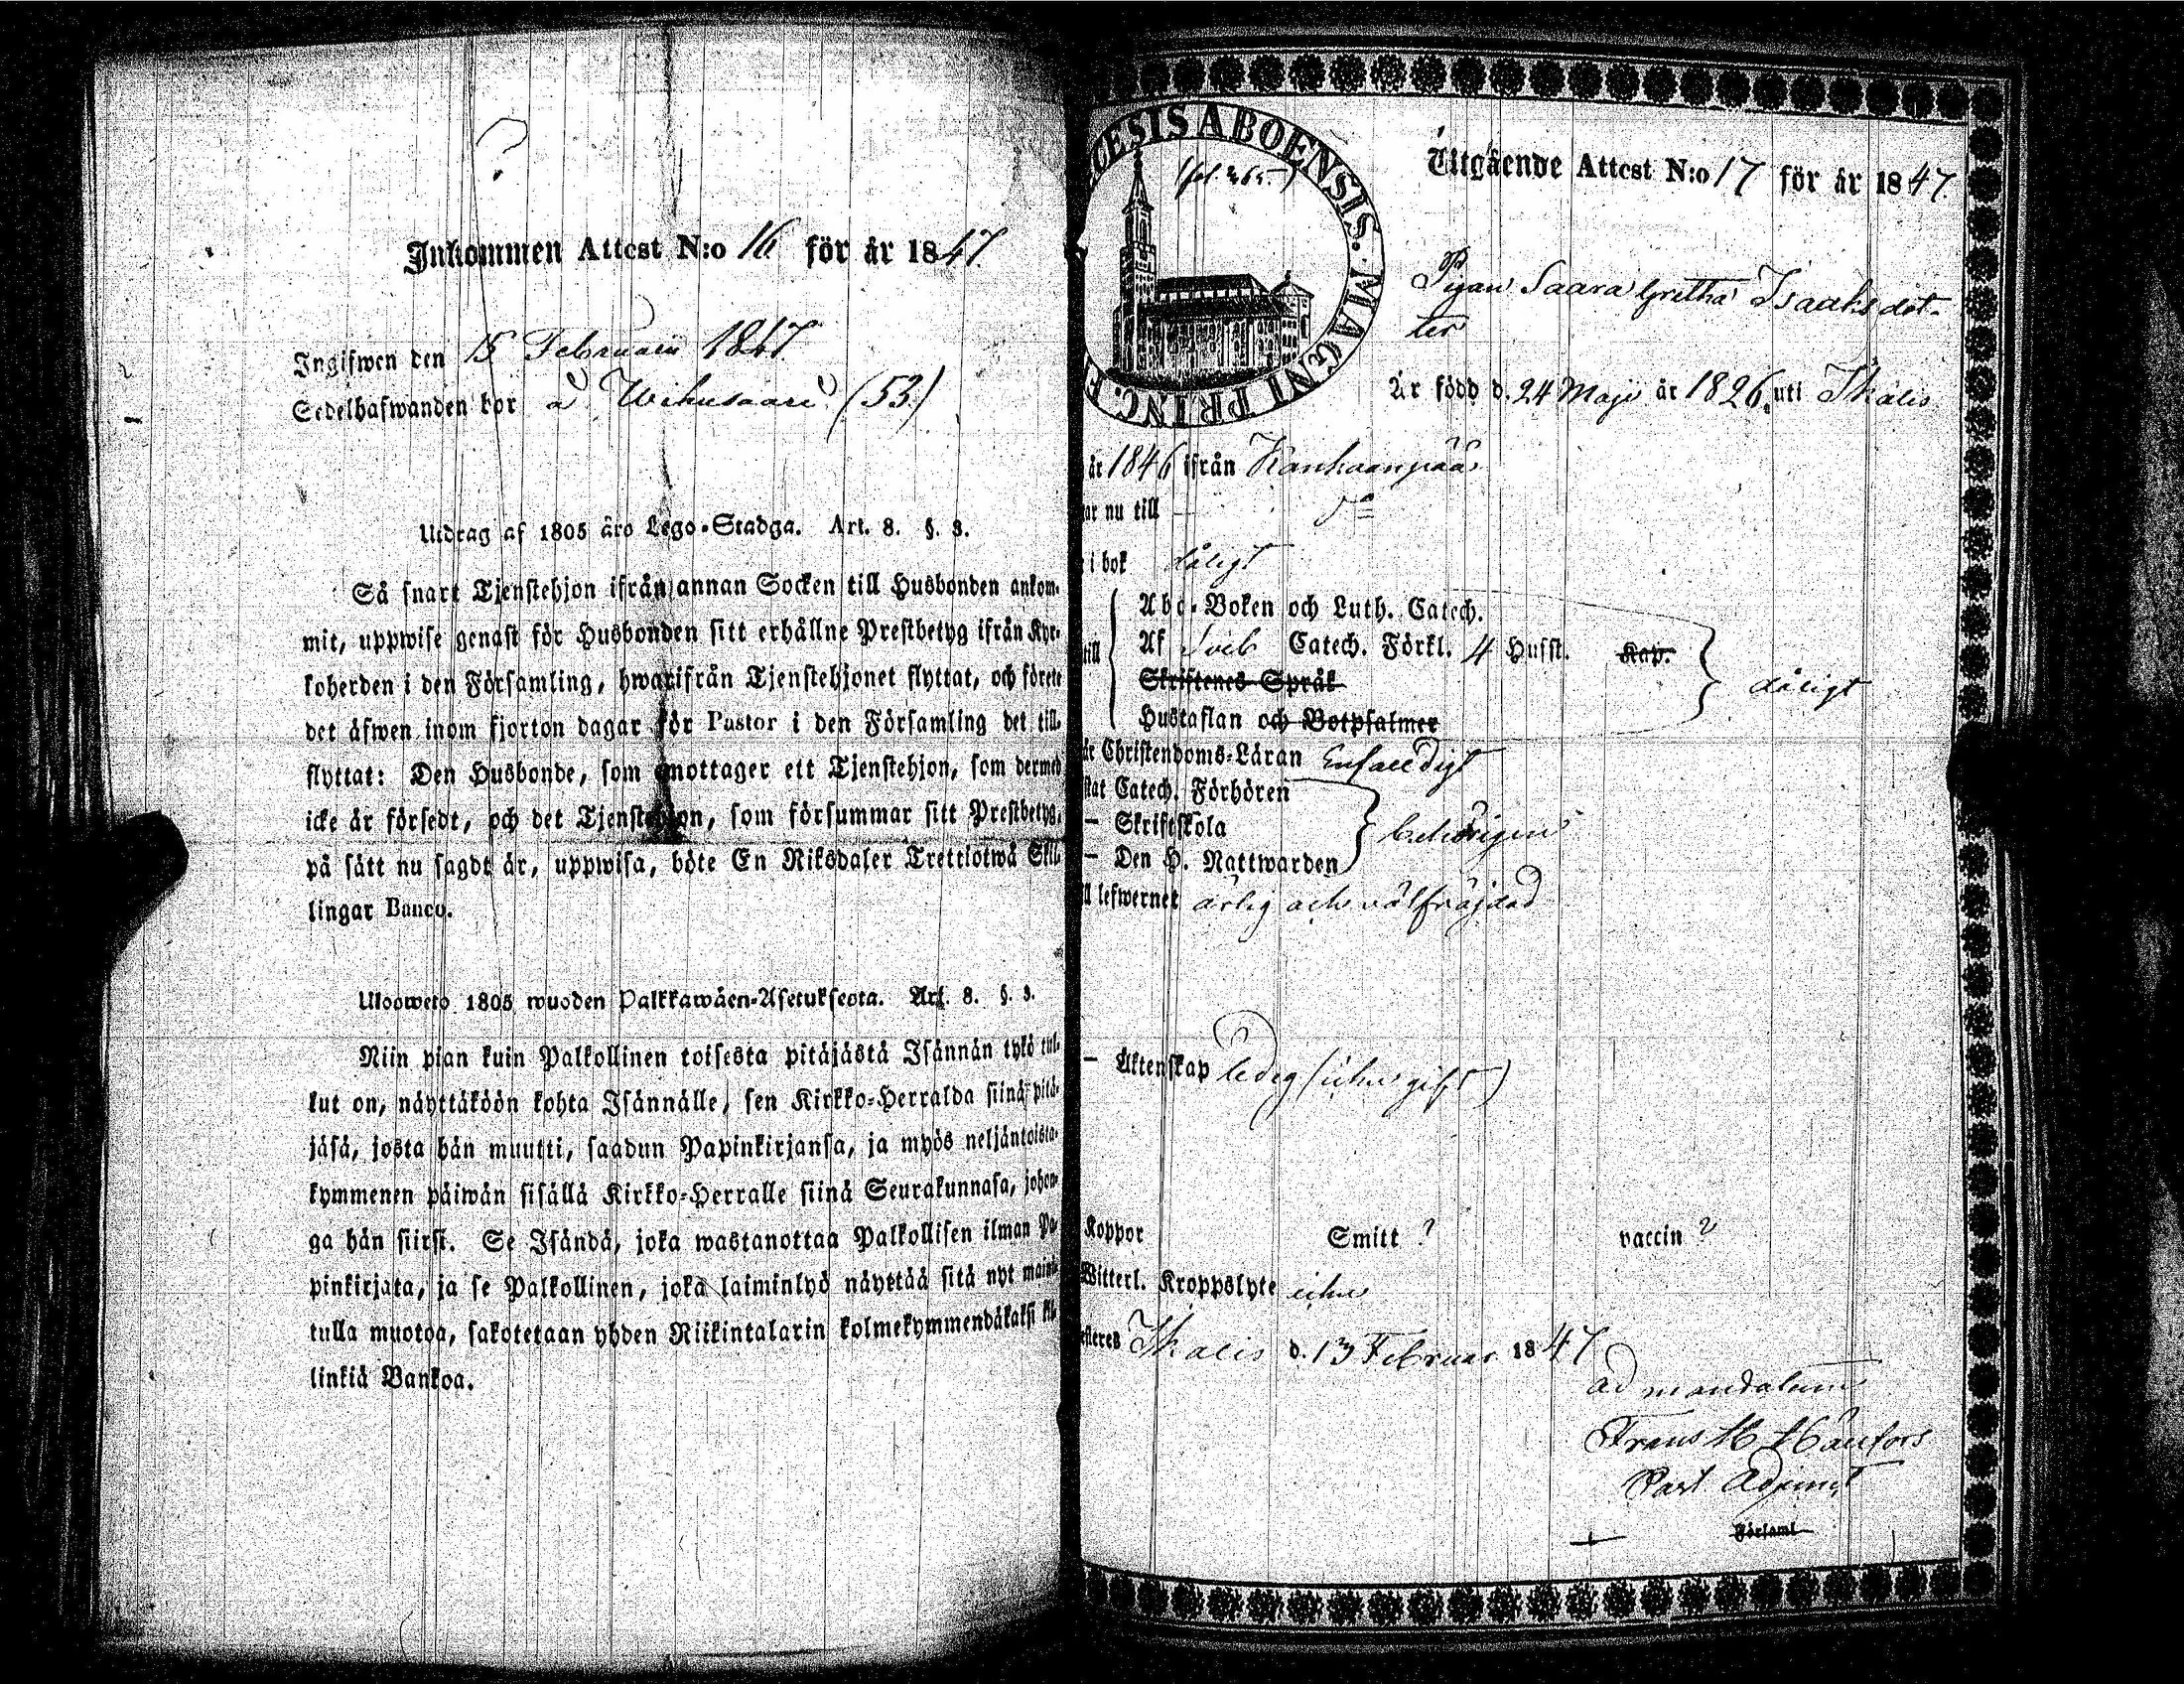 Inkommen Attest N:o 16 för år 1847.
Ingifwen den 15 Februarii 1847
Sedelhafwanden bor å Wihusaari (53)
Utdrag af 1805 års Lego-Stadga. Art. 8. §. 3.
Så snart Tjenstehjon ifrån annan Socken till Husbonden ankom-
mit, uppwise genast för Husbonden sitt erhållne Prestbetyg ifrån Kyr-
koherden i den Församling, hwarifrån Tjenstehjonet flyttat, och förete
det äfwen inom fjorton dagar för Pastor i den Församling det till-
flyttat: Den Husbonde, som emottager ett Tjenstehjon, som dermed
icke är försedt, och det Tjenstehjon, som försummar sitt Prestbetyg,
på sätt nu sagdt är, uppwisa, böte En Riksdaler Trettiotwå Skil-
lingar Banco.
Ulosweto 1805 wuoden Palkkawäen-Asetuksesta. Art. 8. §. 3.
Niin pian kuin Palkollinen toisesta pitäjästä Isännän tykö tul-
kut on, näyttäköön kohta Isännälle, sen Kirkko-Herralda siinä pitä-
jäsä, josta hän muutti, saadun Papinkirjansa, ja myös neljäntoista-
kymmenen päiwän sisällä Kirkko-Herralle siinä Seurakunnasa, johon-
ga hän siirsi. Se Isändä, joka wastanottaa Palkollisen ilman Pa-
pinkirjata, ja se Palkollinen, joka laiminlyö näyttää sitä nyt mainitt
tulla muotoa, sakotetaan yhden Riikintalarin kolmekymmendäkaksi kil-
linkiä Bankoa.
CESIS ABOENSIS. MAGNI PRINC. F
(fol. 265.)
Utgående Attest N:o 17 för år 1847.
Pigan Saara Gretha Isaaksdot-
ter
Är född d. 24 Maji år 1826, uti Ikalis
år 1846 ifrån Kankaanpää
ar nu till — do
i bok dåligt
Abc-Boken och Luth. Catech.
till Af Sveb Catech. Förkl. 4 Husst. Kap.
Skriftenes Språk
Hustaflan och Botpsalmer
dåligt
är Christendoms-Läran Enfaldigt
stat Catech. Förhören
— Skriftskola
— Den H. Nattwarden
behörigen
ll lefwernet ärlig och välfräjdad
— Äktenskap ledig (icke gift)
Koppor Smitt ? vaccin ?
Witterl. Kroppslyte icke
esteres Ikalis d. 13 Februar. 1847
ad mandatum
Frans
Past Adjunct
Församl